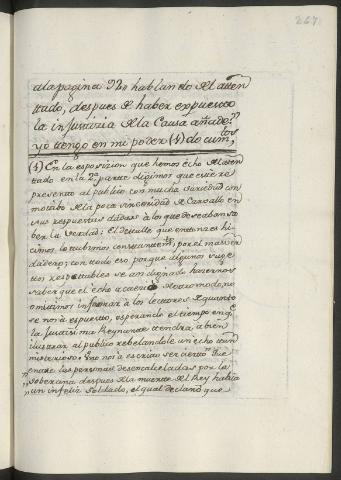 267
ala pagina 920 hablando del aten
tado, despues de haber expuesto
la injusticia de la Causa añade:
yo tengo en mi poder (1) docum.tos
(1) En la esposizion que hemos echo del aten
tado en la 2.a parte digimos que este re
presentó al publico con mucha variedad con
motibo de la poca sinceridad de Carvallo en
sus respuestas dadas à los que deseaban sa
ber la verdad; El detalle que entonces hi
cimos lo tubimos constantem.te por el mas ver
dadero; con todo eso, porque algunos suge
tos respetables se an dignado hacernos
saber que el echo acaeció de otro modo, no
omitimos informar a los lectores de quanto
se nos à espuesto, esperando el tiempo en q.e
la Justisima Reynante tendrá a bien
ilustrar al publico rebelandole un echo tan
misterioso. Se nos à escrito ser cierto: Que
entre las personas desencarceladas por la
soberana despues de la muerte del Rey habia
un infeliz soldado, el qual declaró que